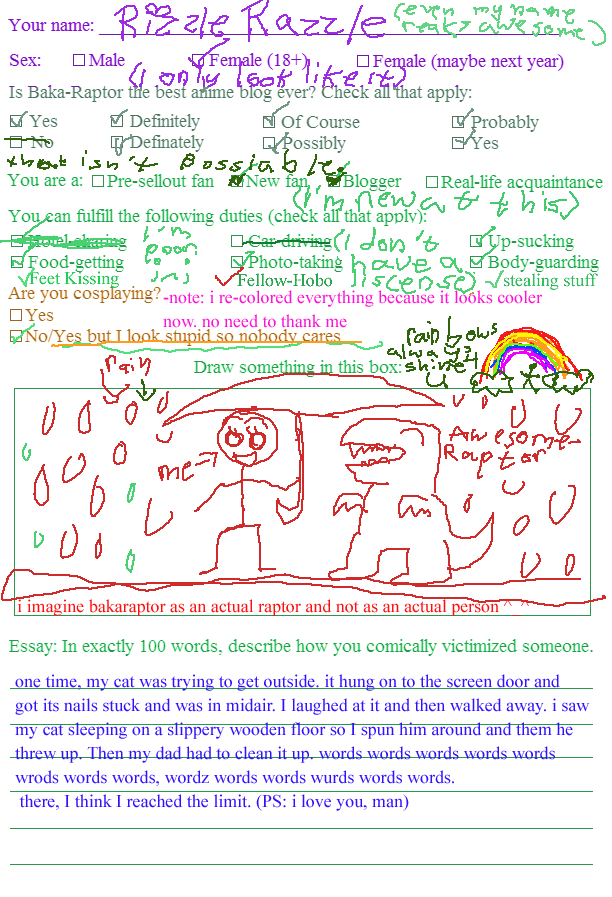 Your name: Rizzle Razzle (even my name
really awesome)
Sex: Male Female (18+) Female (maybe next year)
(I only look like it)
Is Baka-Raptor the best anime blog ever? Check all that apply:
Yes Definitely Of Course Probably
No Definately Possibly Yes
that isn't possiable
You are a: Pre-sellout fan New fan Blogger Real-life acquaintance
(I'm new at this)
You can fulfill the following duties (check all that apply):
Hotel-sharing I'm Car-driving (i don't Up-sucking
Food-getting poor Photo-taking have a Body-guarding
Feet Kissing ): Fellow-Hobo liscense) stealing stuff
Are you cosplaying? -note: i re-colored everything because it looks cooler
Yes now. no need to thank me
No/Yes but I look stupid so nobody cares
rainbows
always
shine!
rain
Draw something in this box:
Awesome
Raptor
me→
i imagine bakaraptor as an actual raptor and not as an actual person ^_^
Essay: In exactly 100 words, describe how you comically victimized someone.
one time, my cat was trying to get outside. it hung on to the screen door and
got its nails stuck and was in midair. I laughed at it and then walked away. i saw
my cat sleeping on a slippery wooden floor so I spun him around and them he
threw up. Then my dad had to clean it up. words words words words words
wrods words words, wordz words words wurds words words.
there, I think I reached the limit. (PS: i love you, man)